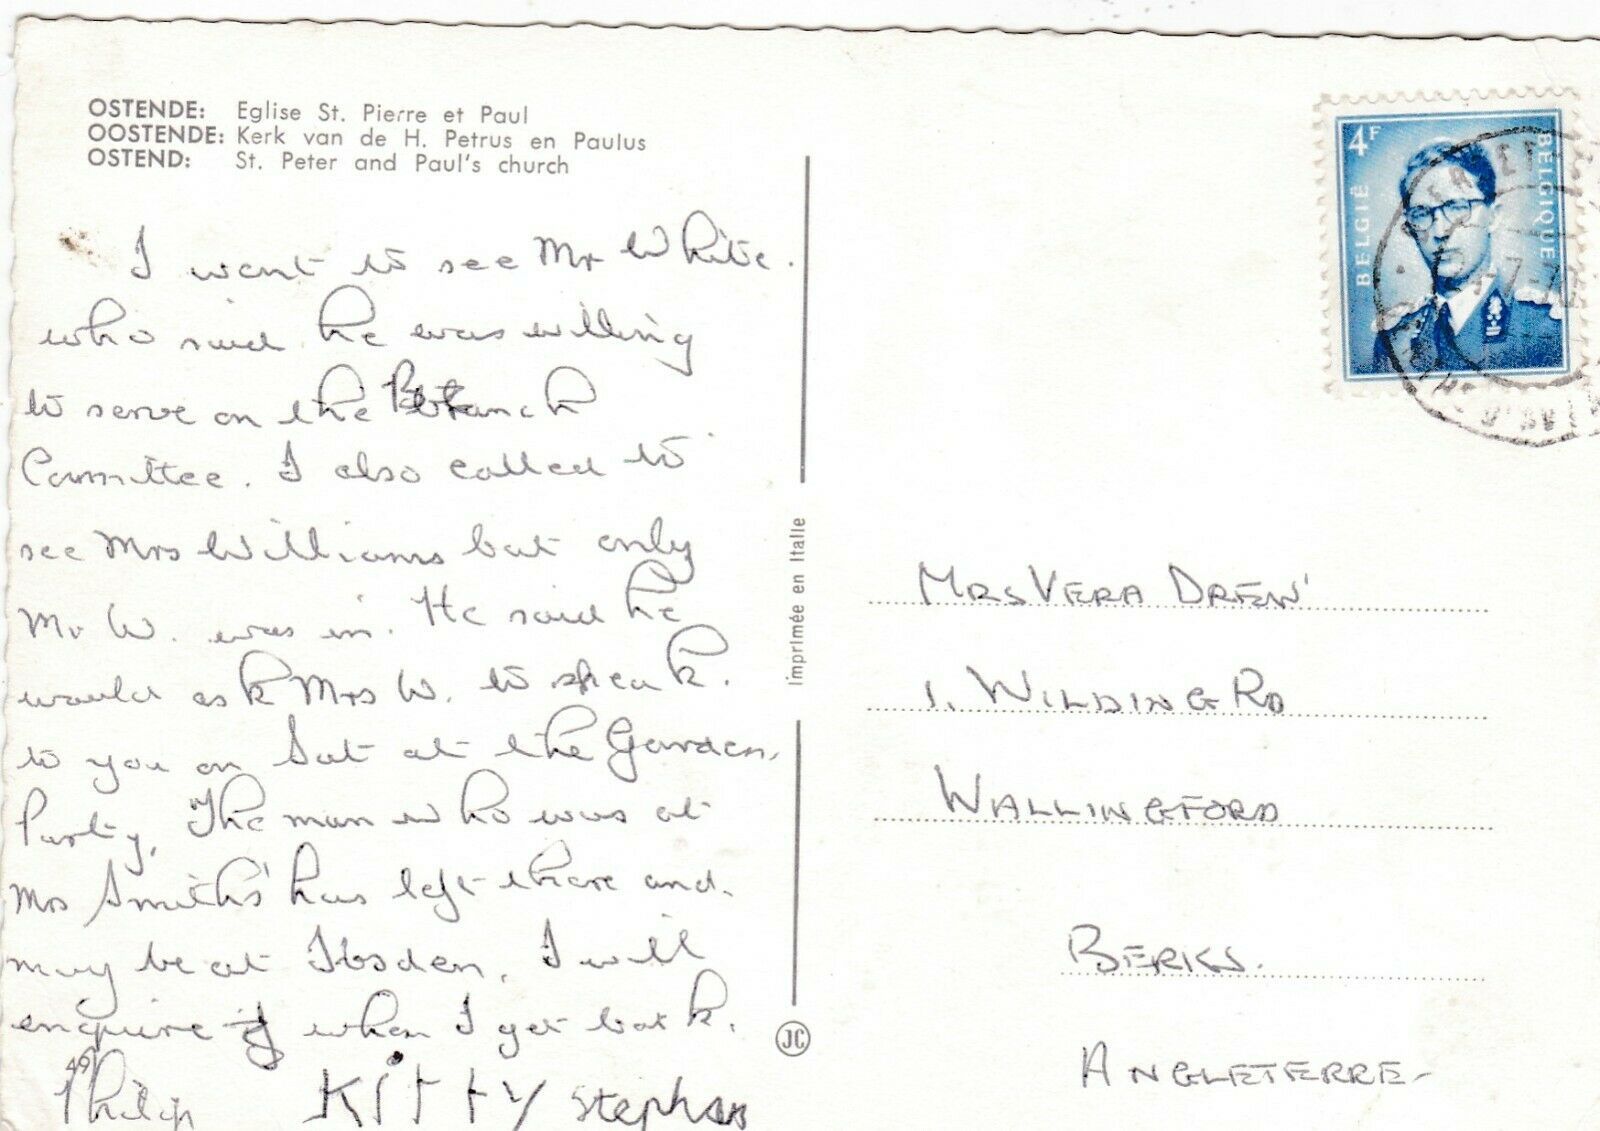 OSTENDE: Eglise St. Pierre et Paul
OOSTENDE: Kerk van de H. Petrus en Paulus
OSTEND: St. Peter and Paul's church
I went to see Mr White.
who said he was willing
to serve on the Branch
Committee. I also called to
see Mrs Williams but only
Mr W. was in. He said he
would ask Mrs W. to speak.
to you on Sat at the Garden.
Party. The man who was at
Mrs Smith's has left there and.
may be at Ibsden, I will
enquire when I get back.
49
Philip KITTY Stephen
Imprimée en Italie
JC
4F
BELGIË
BELGIQUE
MRS VERA DREW
1. WILDING RD
WALLINGFORD
BERKS.
ANGLETERRE-